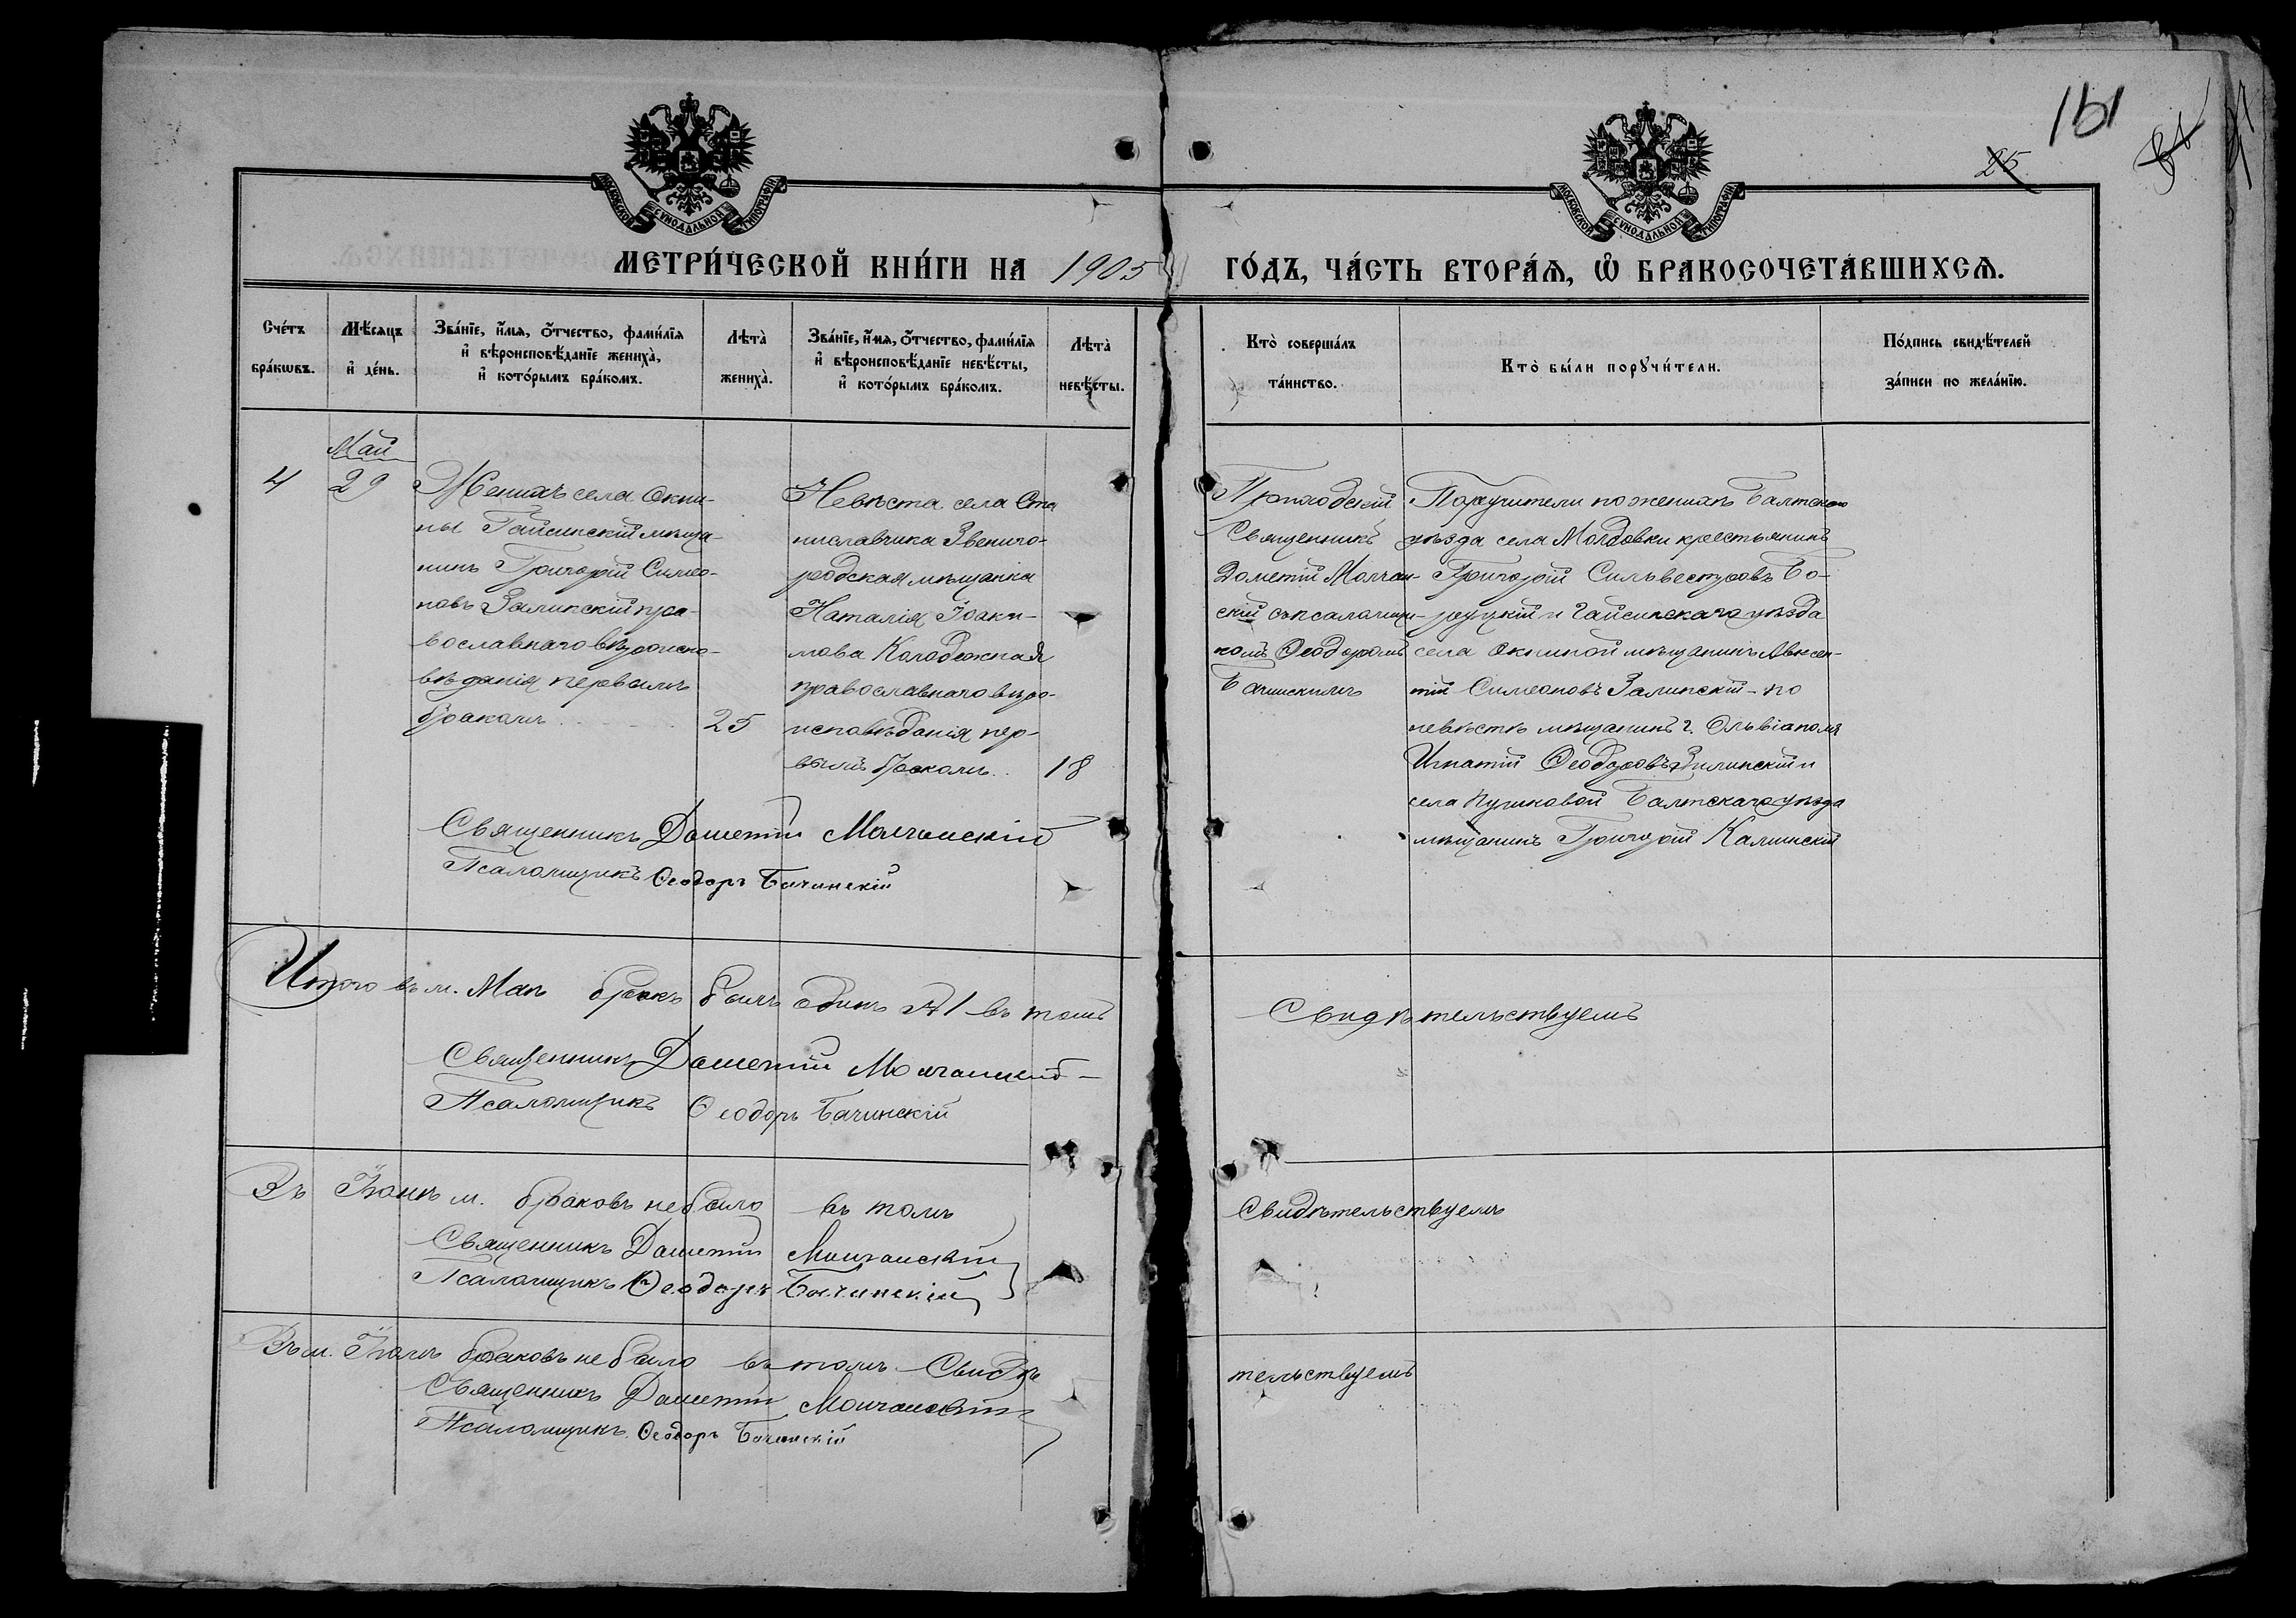 161
25
МОСКОВСКОЙ СУНОДАЛЬНОЙ ТИПОГРАФІИ
МОСКОВСКОЙ СУНОДАЛЬНОЙ ТИПОГРАФІИ
МЕТРИ́ЧЕСКОЙ КНИ́ГИ НА 1905 ГО́ДЪ, ЧА́СТЬ ВТОРА́Ѧ, Ѽ БРАКОСОЧЕТА́ВШИХСѦ.
Сче́тъ
бра́кѡвъ.
Мѣ́сѧцъ
и҆ де́нь.
Зва́нїе, и҆́мѧ, ѻ҆́тчество, фами́лїѧ
и҆ вѣроисповѣ́данїе жениха̀,
и҆ кото́рымъ бра́комъ.
Лѣта̀
жениха̀.
Зва́нїе, и҆́мѧ, ѻ҆́тчество, фами́лїѧ
и҆ вѣроисповѣ́данїе невѣ́сты,
и҆ кото́рымъ бра́комъ.
Лѣта̀
невѣ́сты.
Кто̀ соверша́лъ
та́инство.
Кто̀ бы́ли порꙋчи́тели.
По́дпись свидѣ́телей
за́писи по жела́нїю.
Май
4
29
Женихъ села Окни-
ны Гайсинскій мѣща-
нинъ Григорій Симео-
новъ Залинскій пра-
вославнаго вѣроиспо-
вѣданія первымъ
бракомъ
25
Невѣста села Ста
ниславчика Звениго-
родская мѣщанка
Наталія Іоаки-
мова Колодежная
православнаго вѣро-
исповѣданія пер-
вымъ бракомъ
18
Приходскій
Священникъ
Дометій Молчан-
скій съ псаломщи-
комъ Ѳеодоромъ
Бачинскимъ
Поручители по женихѣ Балтскаго
уѣзда села Молдовки крестьянинъ
Григорій Сильвестровъ Бо-
руцкій и Гайсинскаго уѣзда
села Окниной мѣщанинъ Авксен-
тій Симеоновъ Залинскій - по
невѣстѣ мѣщанинъ г. Ольвіополя
Игнатій Ѳеодоровъ Зилинскій и
села Пужковой Балтскаго уѣзда
мѣщанинъ Григорій Калинскій
Священникъ Дометій Молчанскій
Псаломщикъ Ѳеодоръ Бачинскій
Итого въ м. Маѣ бракъ былъ одинъ № 1 въ томъ Свидѣтельствуемъ
Священникъ Дометій Молчанскій
Псаломщикъ Ѳеодоръ Бачинскій
Въ Іюнѣ м. браковъ не было въ томъ Свидѣтельствуемъ
Священникъ Дометій Молчанскій
Псаломщикъ Ѳеодоръ Бачинскій
Въ м. Іюлѣ браковъ не было въ томъ Свидѣтельствуемъ
Священникъ Дометій Молчанскій
Псаломщикъ Ѳеодоръ Бачинскій